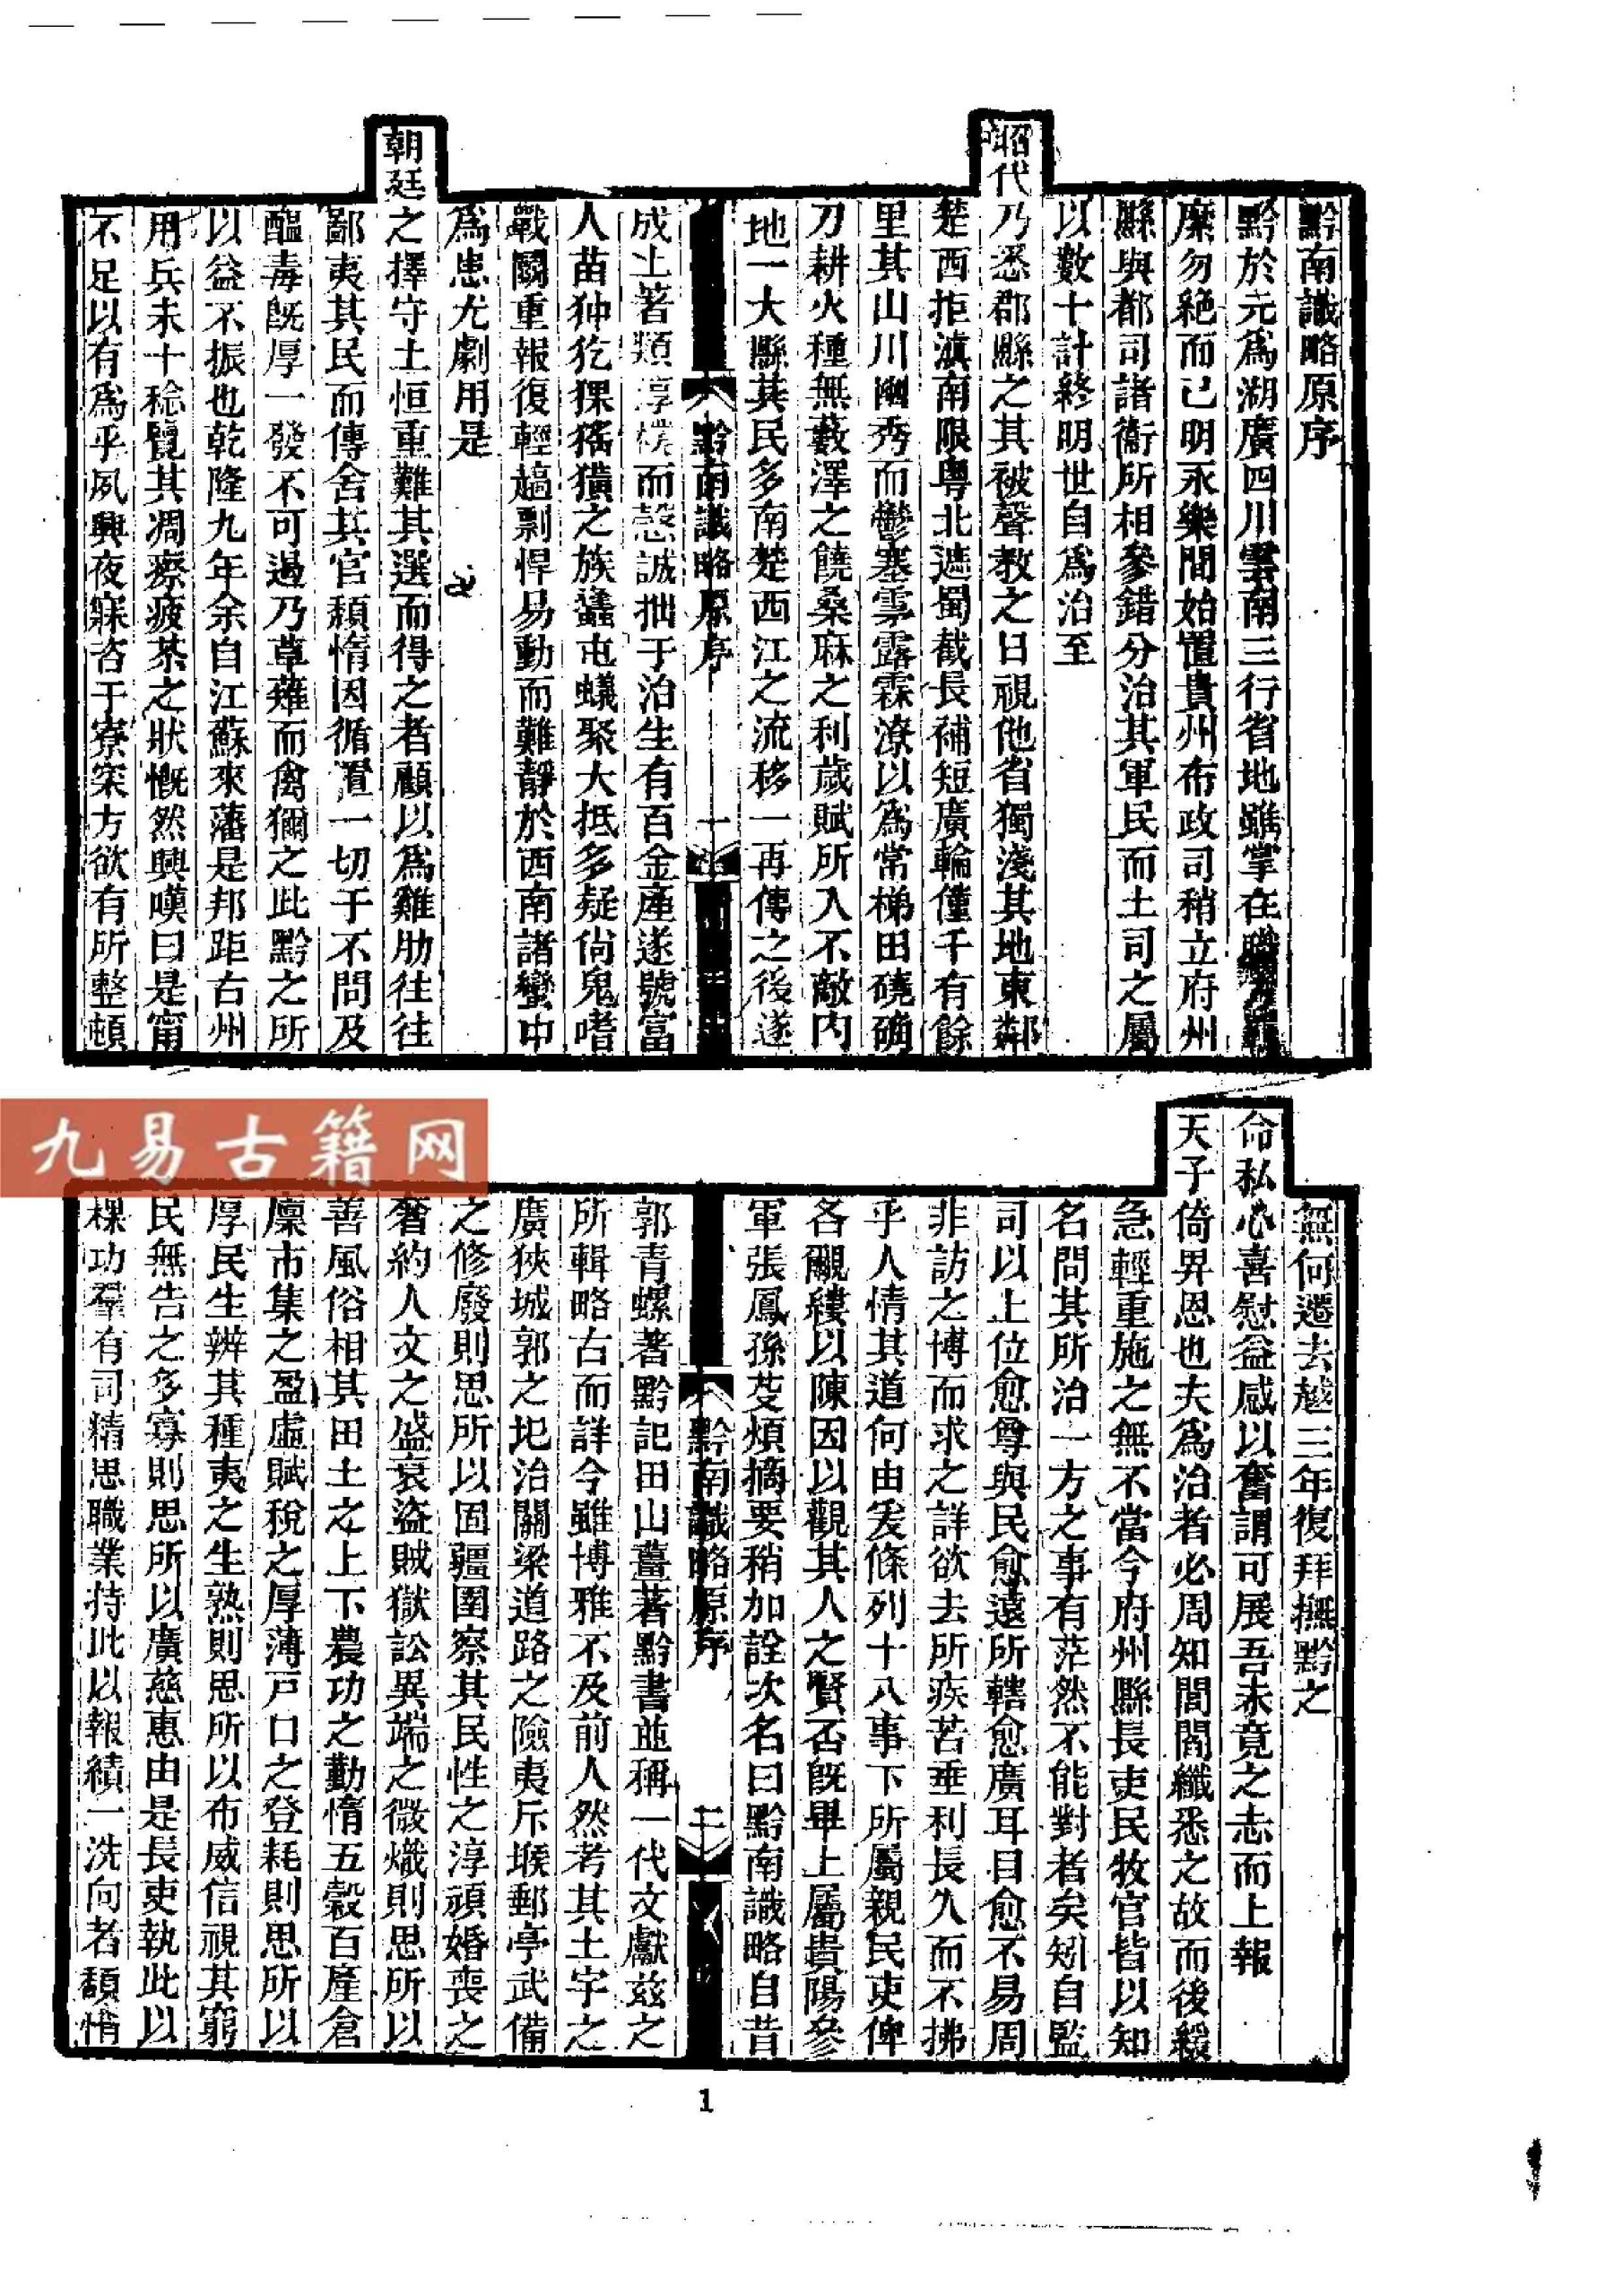 黔南識略原序
黔於元爲湖廣四川雲南三行省地雖掌在職方羈
縻勿絶而已明永樂間始置貴州布政司稍立府州
縣與都司諸衞所相參錯分治其軍民而土司之屬
以數十計終明世自爲治至
昭代乃悉郡縣之其被聲教之日視他省獨淺其地東鄰
楚西拒滇南限粤北遮蜀截長補短廣輪僅千有餘
里其山川幽秀而鬱塞雺露霖潦以爲常梯田磽确
刀耕火種無藪澤之饒桑麻之利歲賦所入不敵内
地一大縣其民多南楚西江之流移一再傳之後遂
黔南識略原序
一
成土著類淳樸而慤誠拙于治生有百金產遂號富
人苗狆犵猓猺獚之族蠭屯蟻聚大抵多疑尙鬼嗜
戰鬭重報復輕趫剽悍易動而難靜於西南諸蠻中
爲患尤劇用是
朝廷之擇守土恒重難其選而得之者顧以爲雞肋往往
鄙夷其民而傳舍其官頹惰因循置一切于不問及
醖毒旣厚一發不可遏乃草薙而禽獮之此黔之所
以益不振也乾隆九年余自江蘇來藩是邦距古州
用兵未十稔覽其凋瘵疲苶之狀慨然興嘆曰是甯
不足以有爲乎夙興夜寐咨于寮寀方欲有所整頓
無何遷去越三年復拜撫黔之
命私心喜慰益感以奮謂可展吾未竟之志而上報
天子倚畀恩也夫爲治者必周知閭閻纖悉之故而後緩
急輕重施之無不當今府州縣長吏民牧官皆以知
名問其所治一方之事有茫然不能對者矣矧自監
司以上位愈尊與民愈遠所轄愈廣耳目愈不易周
非訪之博而求之詳欲去所疾苦垂利長久而不拂
乎人情其道何由爰條列十八事下所屬親民吏俾
各覼縷以陳因以觀其人之賢否旣畢上屬貴陽參
軍張鳳孫芟煩摘要稍加詮次名曰黔南識略自昔
黔南識略原序
二
郭青螺著黔記田山薑著黔書並稱一代文獻兹之
所輯略古而詳今雖博雅不及前人然考其土宇之
廣狹城郭之圮治關梁道路之險夷斥堠郵亭武備
之修廢則思所以固疆圉察其民性之淳頑婚喪之
奢約人文之盛衰盜賊獄訟異端之微熾則思所以
善風俗相其田土之上下農功之勤惰五穀百產倉
廩市集之盈虛賦稅之厚薄戸口之登耗則思所以
厚民生辨其種夷之生熟則思所以布威信視其窮
民無告之多寡則思所以廣慈惠由是長吏執此以
課功羣有司精思職業持此以報績一洗向者頹惰
九易古籍网
1